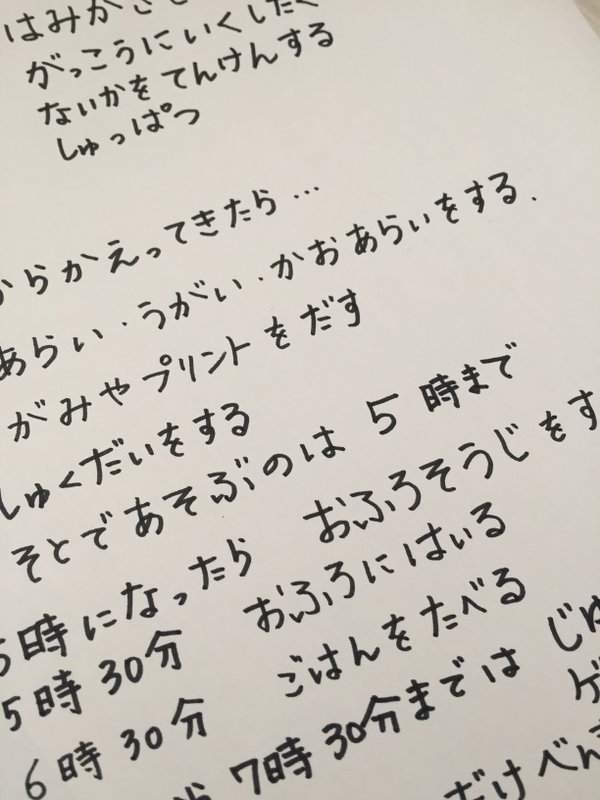 はみがき
がっこうにいくしたく
ないかをてんけんする
しゅっぱつ
からかえってきたら…
あらい・うがい・かおあらいをする.
がみやプリントをだす
しゅくだいをする
そとであそぶのは 5時まで
5時になったら おふろそうじをす
5時30分 おふろにはいる
6時30分 ごはんをたべる
7時30分までは じゆ
ゲ
だけべん